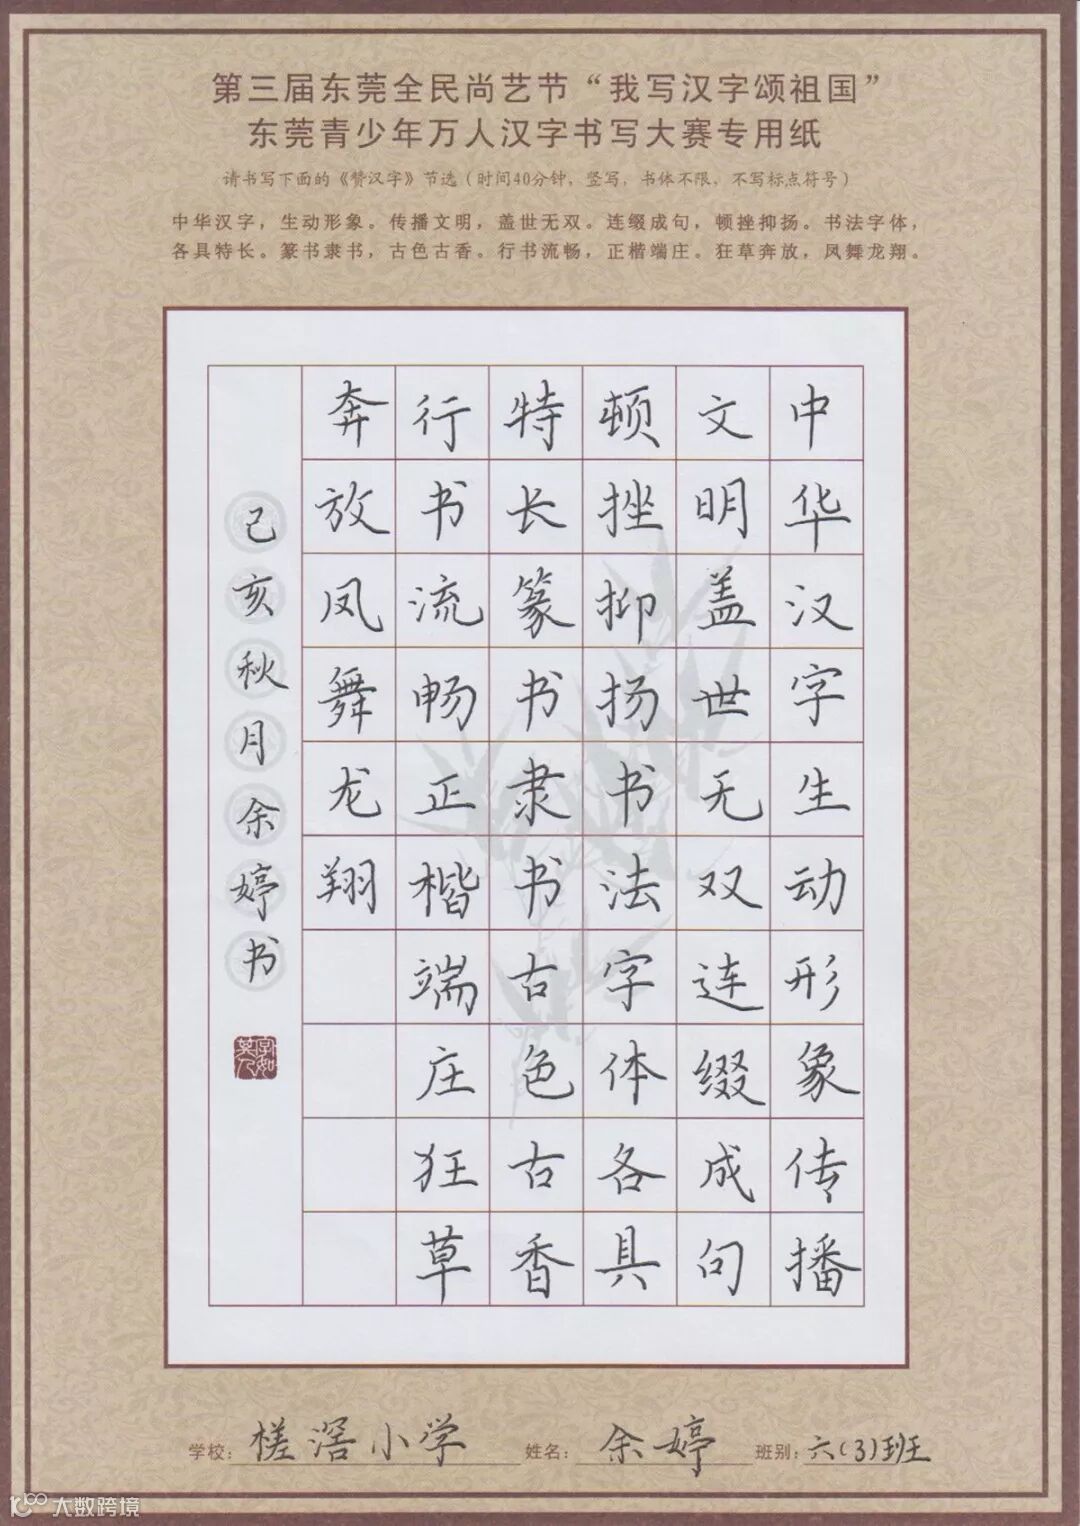 第三届东莞全民尚艺节“我写汉字颂祖国”
东莞青少年万人汉字书写大赛专用纸
请书写下面的《赞汉字》节选（时间40分钟，竖写，书体不限，不写标点符号）
中华汉字，生动形象。传播文明，盖世无双。连缀成句，顿挫抑扬。书法字体，
各具特长。篆书隶书，古色古香。行书流畅，正楷端庄。狂草奔放，凤舞龙翔。
中华汉字生动形象传播
文明盖世无双连缀成句
顿挫抑扬书法字体各具
特长篆书隶书古色古香
行书流畅正楷端庄狂草
奔放凤舞龙翔
己亥秋月余婷书
字如其人
学校：槎滘小学 姓名：余婷 班别：六(3)班
大数跨境